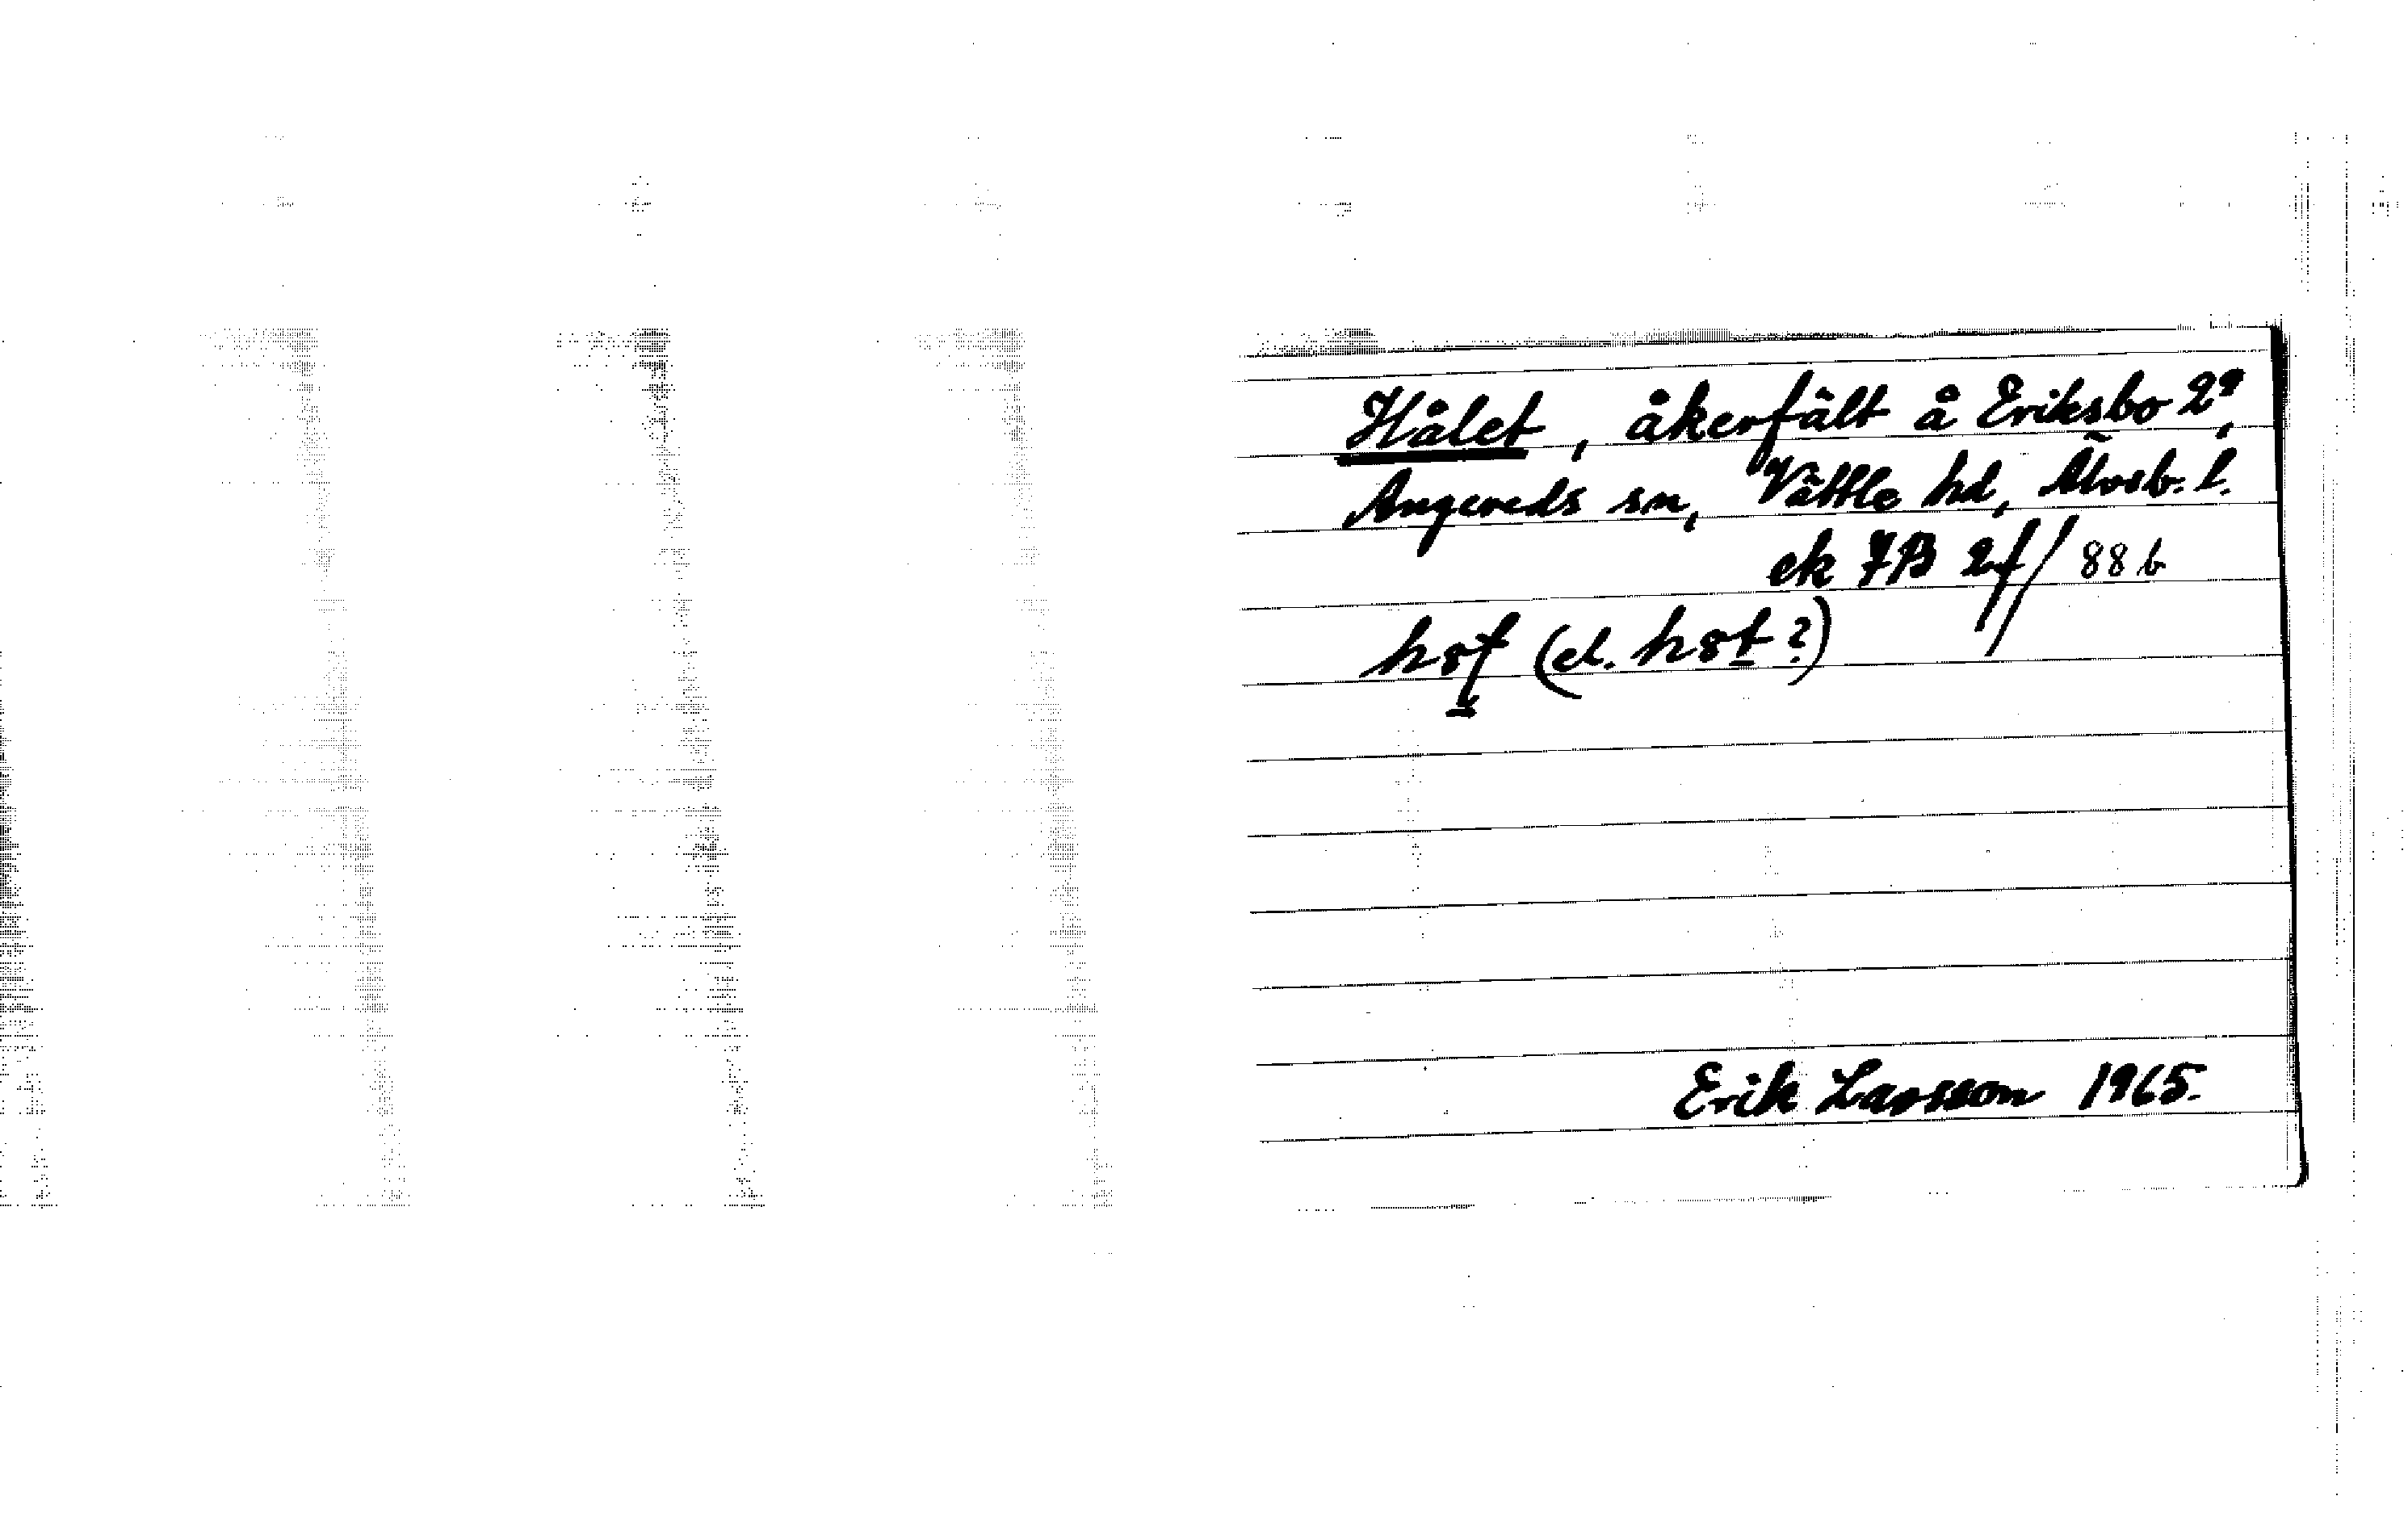 Hålet, åkerfält å Eriksbo 2⁹,
Angereds sn, Vättle hd, Älvsb. l.
ek 7B 2f/88b
(el. ?)
Erik Larsson 1965.